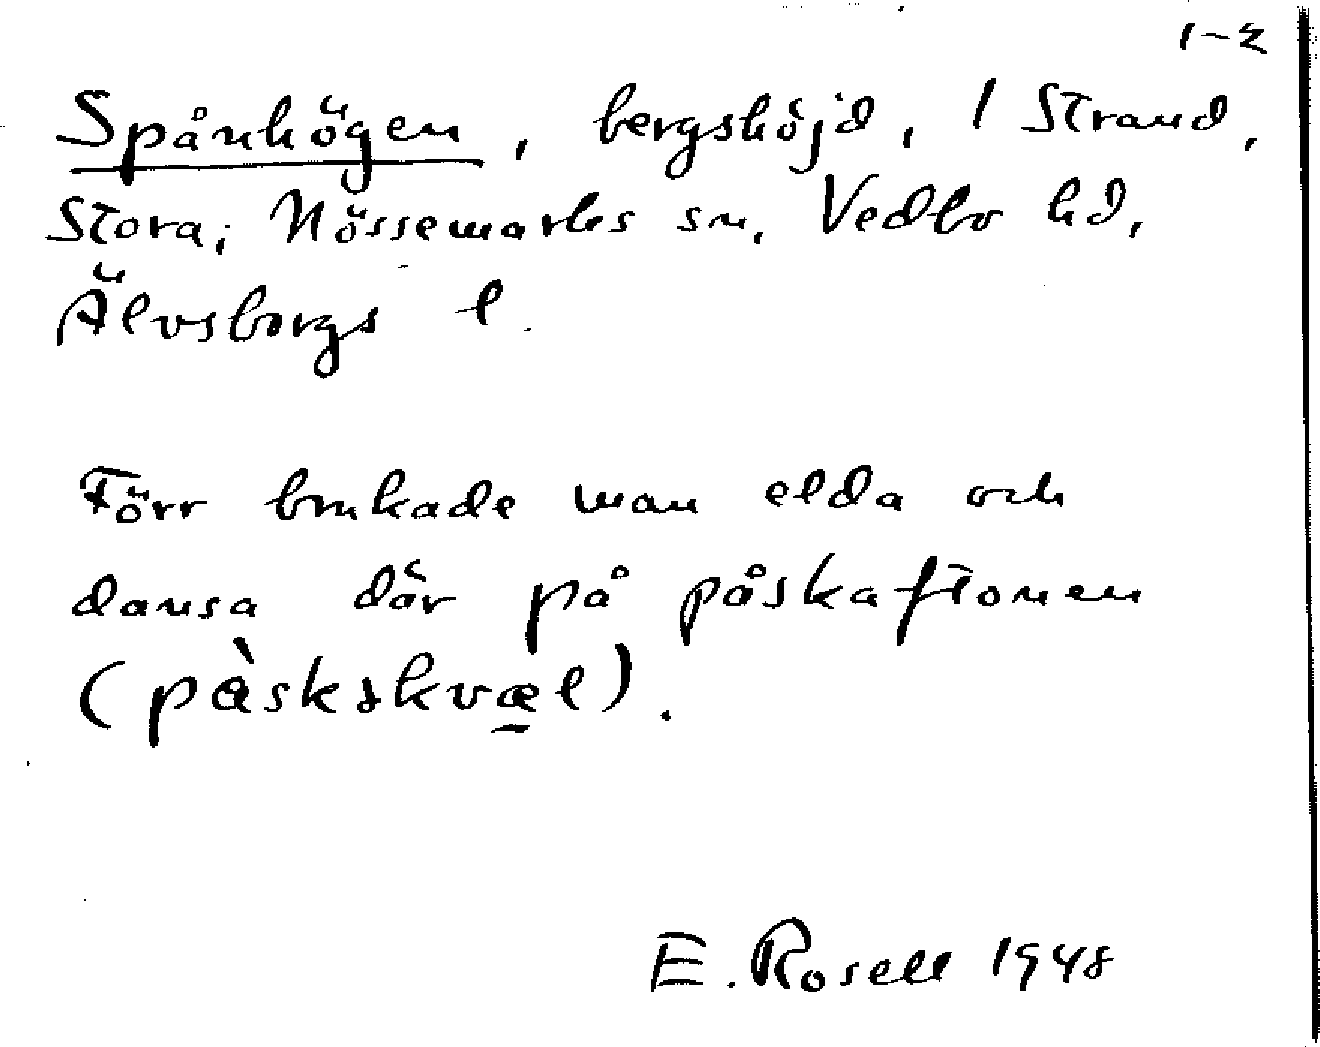 1-2
Spånhögen, bergshöjd, 1 Strand,
Stora; Nössemarks sn, Vedbo hd,
Älvsborgs l.
Förr brukade man elda och
dansa där på påskaftonen
(pàskskvæl).
E. Rosell 1948